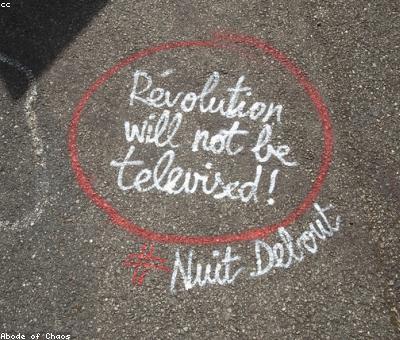 cc
Révolution
will not be
televised!
# Nuit Debout
Abode of Chaos